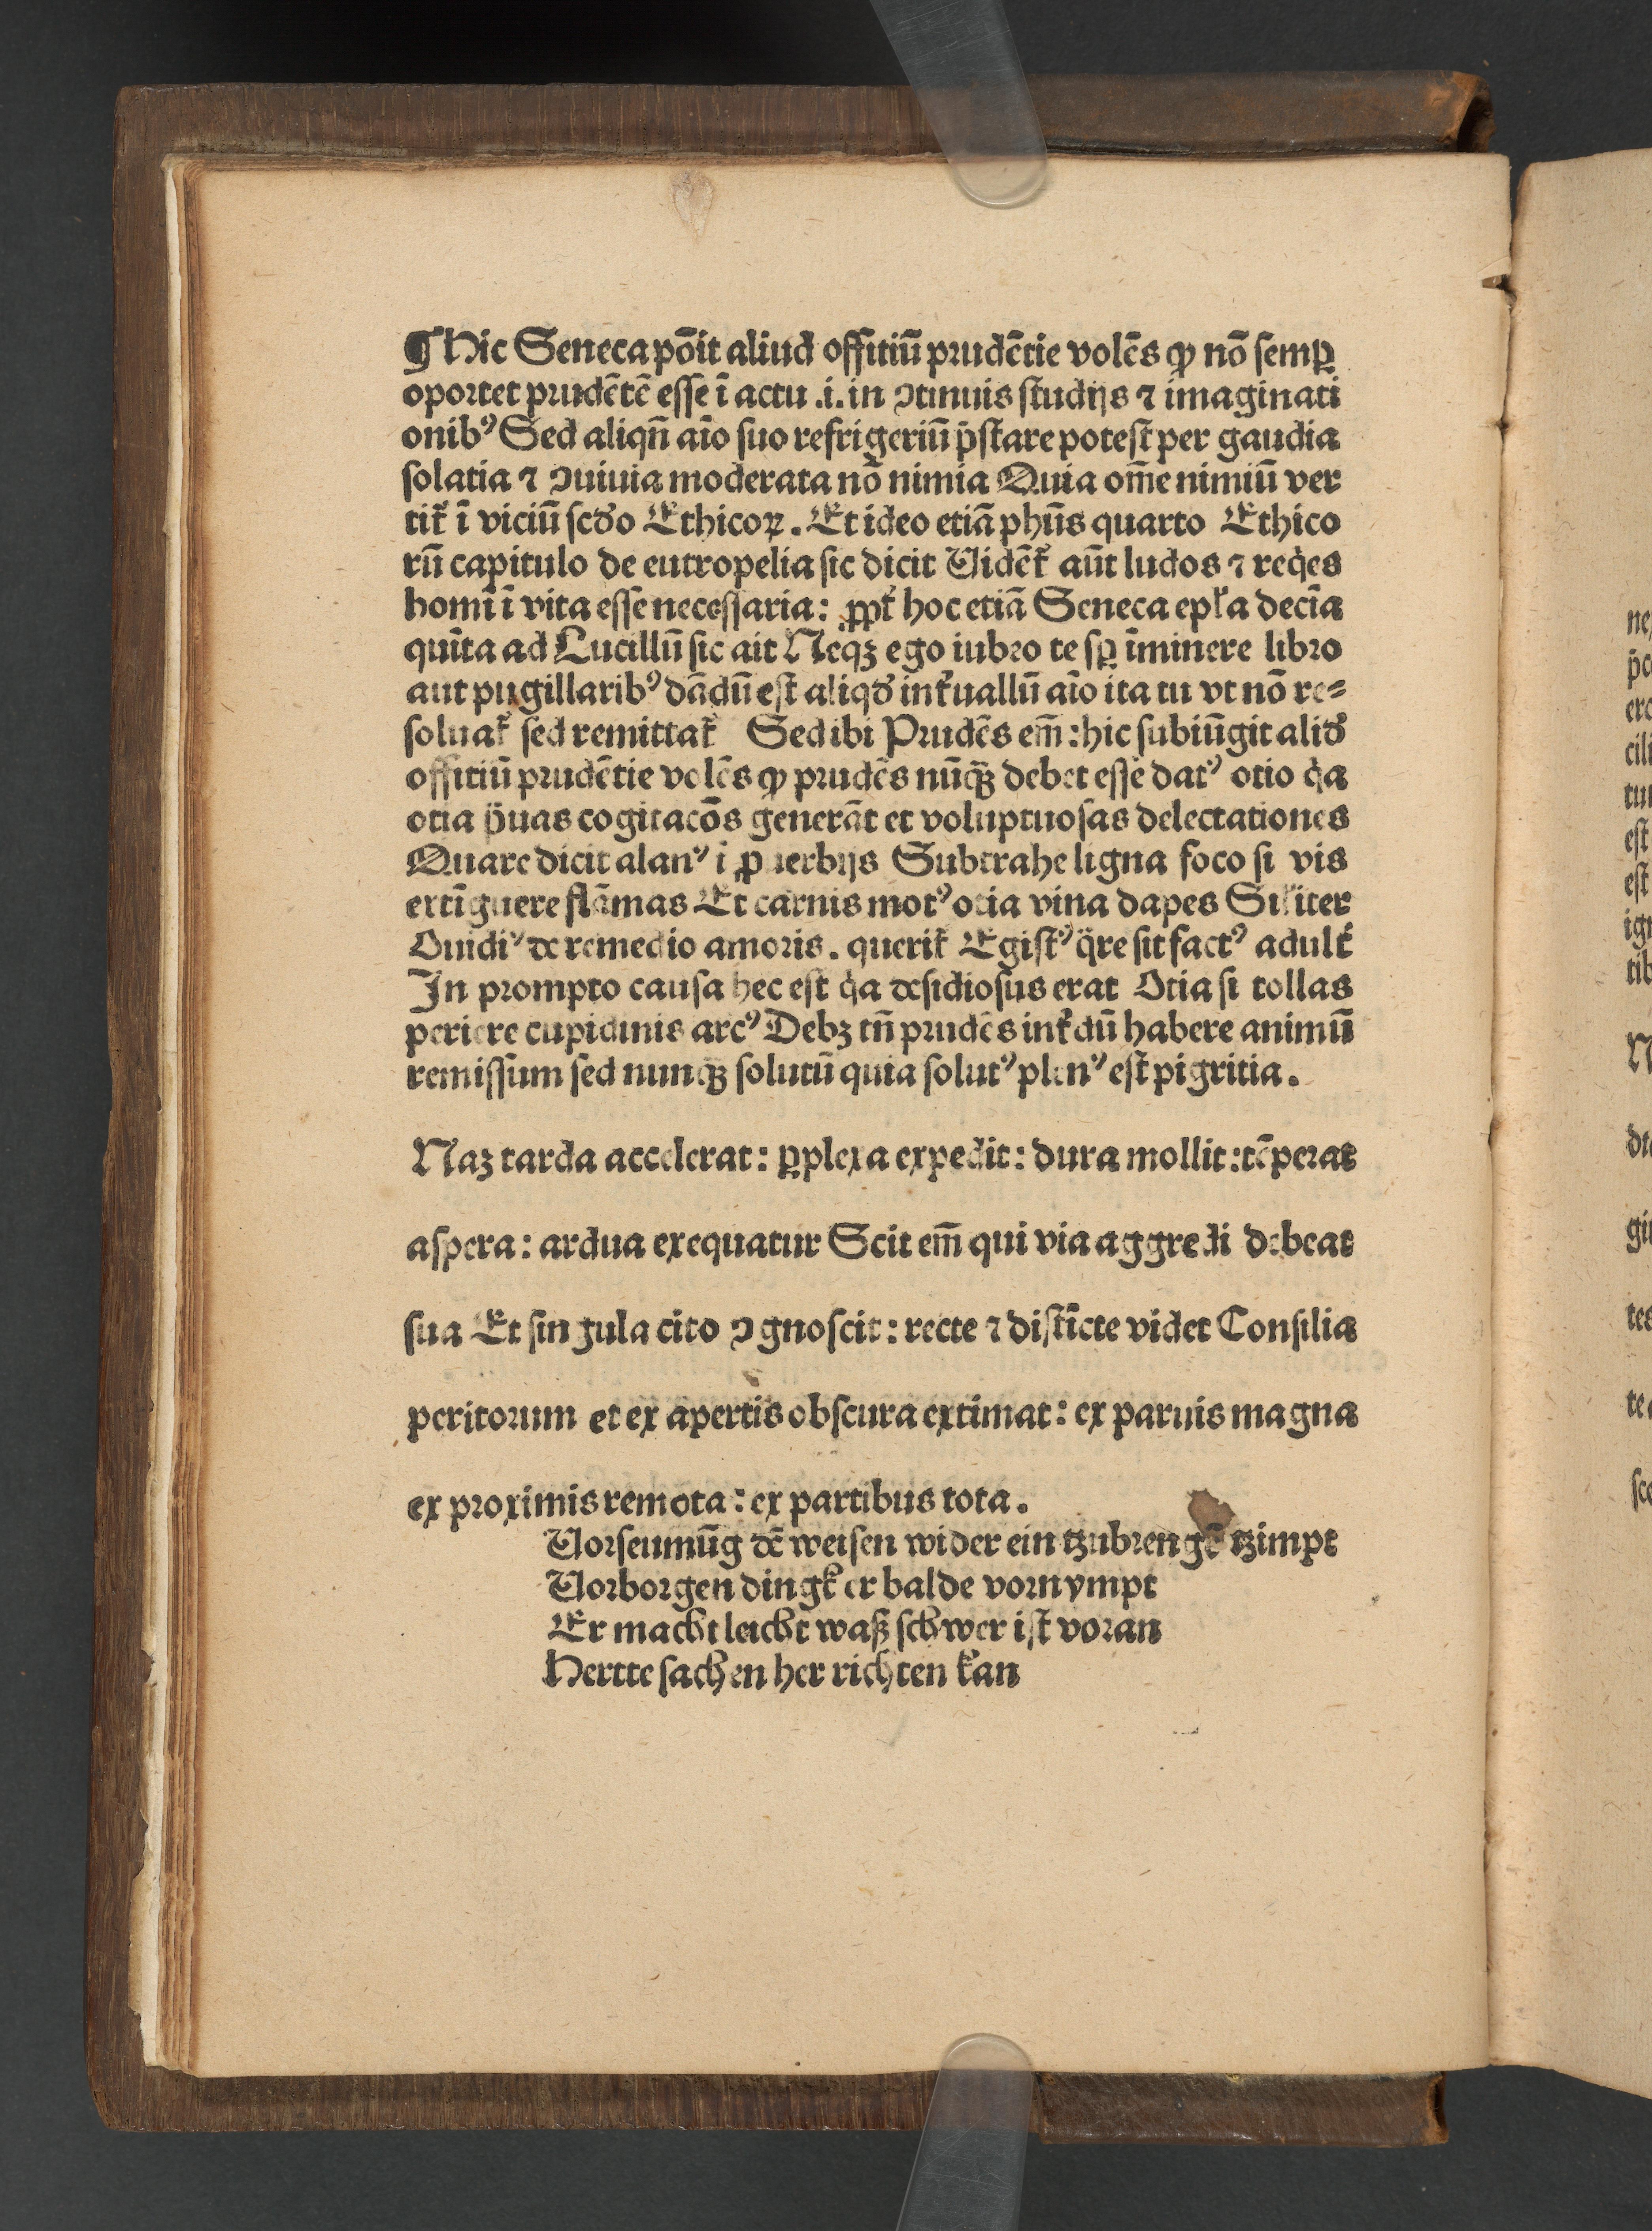 ¶ Hic Seneca põit aliud offitiũ prudẽtie volẽs ꝙ nõ semꝑ
oportet prudẽtẽ esse ĩ actu .i. in ↄtinuis studijs ⁊ imaginati
onibꝰ Sed aliqñ aĩo suo refrigeriũ p̃stare potest per gaudia
solatia ⁊ ↄuiuia moderata nõ nimia Quia om̃e nimiũ ver
tit᷑ ĩ viciũ scd̓o Ethicoꝝ. Et ideo etiã phũs quarto Ethico
rũ capitulo de eutropelia sic dicit Uidẽt᷑ aũt ludos ⁊ reqͥes
homĩ ĩ vita esse necessaria: ꝓpt᷑ hoc etiã Seneca epł'a decĩa
quĩta ad Lucillũ sic ait Neqꝫ ego iubro te sꝑ ĩminere libro
aut pugillaribꝰ dãdũ est aliqd̓ int᷑uallũ aĩo ita tu vt nõ re⸗
soluat᷑ sed remittat᷑ Sed ibi Prudẽs em̃: hic subiũgit alid̓
offitiũ prudẽtie volẽs ꝙ prudẽs nũqꝫ̃ debet esse datꝰ otio qͥa
otia p̃uas cogitacõs generãt et voluptuosas delectationes
Quare dicit alanꝰ i ꝓuerbijs Subtrahe ligna foco si vis
extĩguere flãmas Et carnis motꝰ otia vina dapes Sil'iter
Ouidiꝰ de remedio amoris. querit᷑ Egistꝰ q̃re sit factꝰ adult᷑
In prompto causa hec est qͥa desidiosus erat Otia si tollas
periere cupidinis arcꝰ Debꝫ tñ prudẽs int᷑dũ habere animũ
remissum sed nunqꝫ̃ solutũ quia solutꝰ plenꝰ est pigritia.
Naꝫ tarda accelerat: ꝑplexa expedit: dura mollit: tẽperat
aspera: ardua exequatur Scit em̃ qui via aggredi debeat
sua Et singula cito ↄgnoscit: recte ⁊ distĩcte videt Consilia
peritorum et ex apertis obscura extimat: ex paruis magna
ex proximis remota: ex partibus tota.
Uorseumũg dẽ weisen wider ein tzubrengẽ tzimpt
Uorborgen dingk er balde vornympt
Er macht leicht waß schwer ist voran
Hertte sachen her richten kan